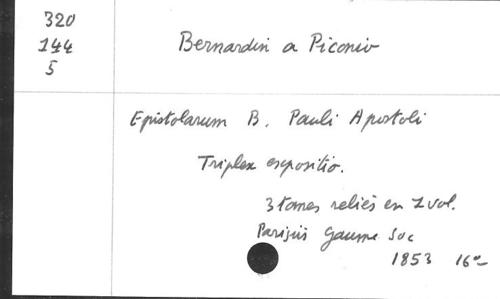 320
144
5
Bernardin a Piconio
Epistolarum B. Pauli Apostoli
Triplex expositio.
3 tomes reliés en 1 vol.
Parisiis Gaume Soc
1853 16°